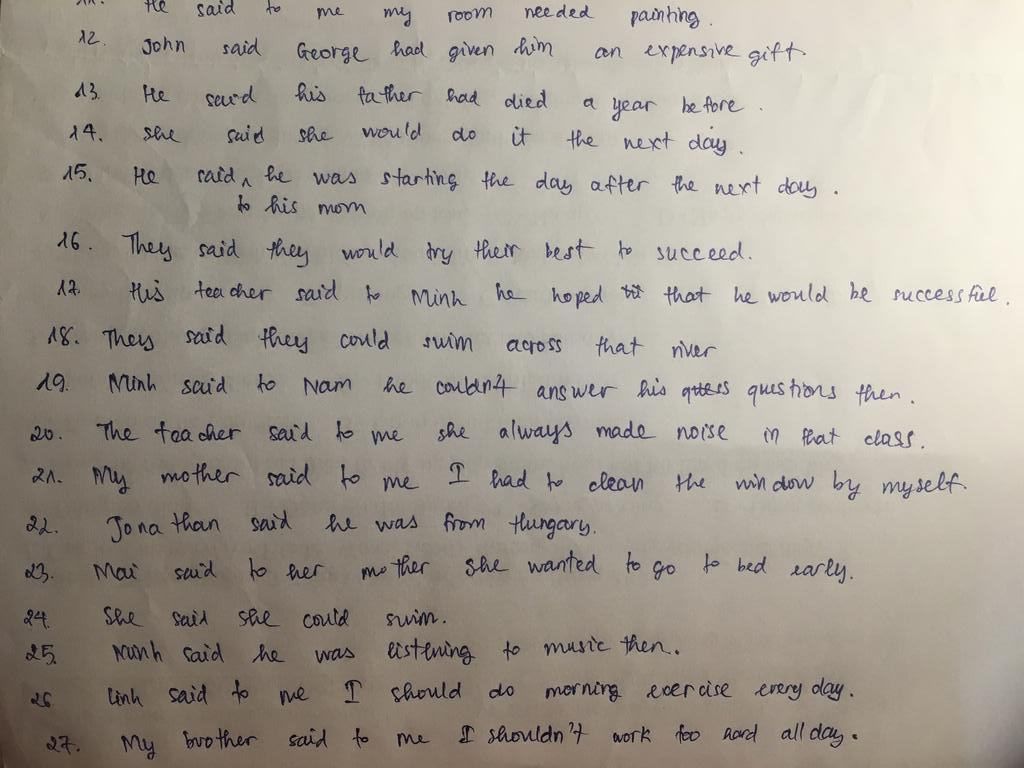 11. He said to me my room needed painting.
12. John said George had given him an expensive gift
13. He said his father had died a year before.
14. She said she would do it the next day.
15. He said ^ he was starting the day after the next day.
to his mom
16. They said they would try their best to succeed.
17. His teacher said to Minh he hoped that he would be successful.
18. They said they could swim across that river
19. Minh said to Nam he couldn't answer his questions then.
20. The teacher said to me she always made noise in that class.
21. My mother said to me I had to clean the window by myself.
22. Jonathan said he was from Hungary.
23. Mai said to her mother she wanted to go to bed early.
24. She said she could swim.
25. Minh said he was listening to music then.
26 Linh said to me I should do morning exercise every day.
27. My brother said to me I shouldn't work too hard all day.